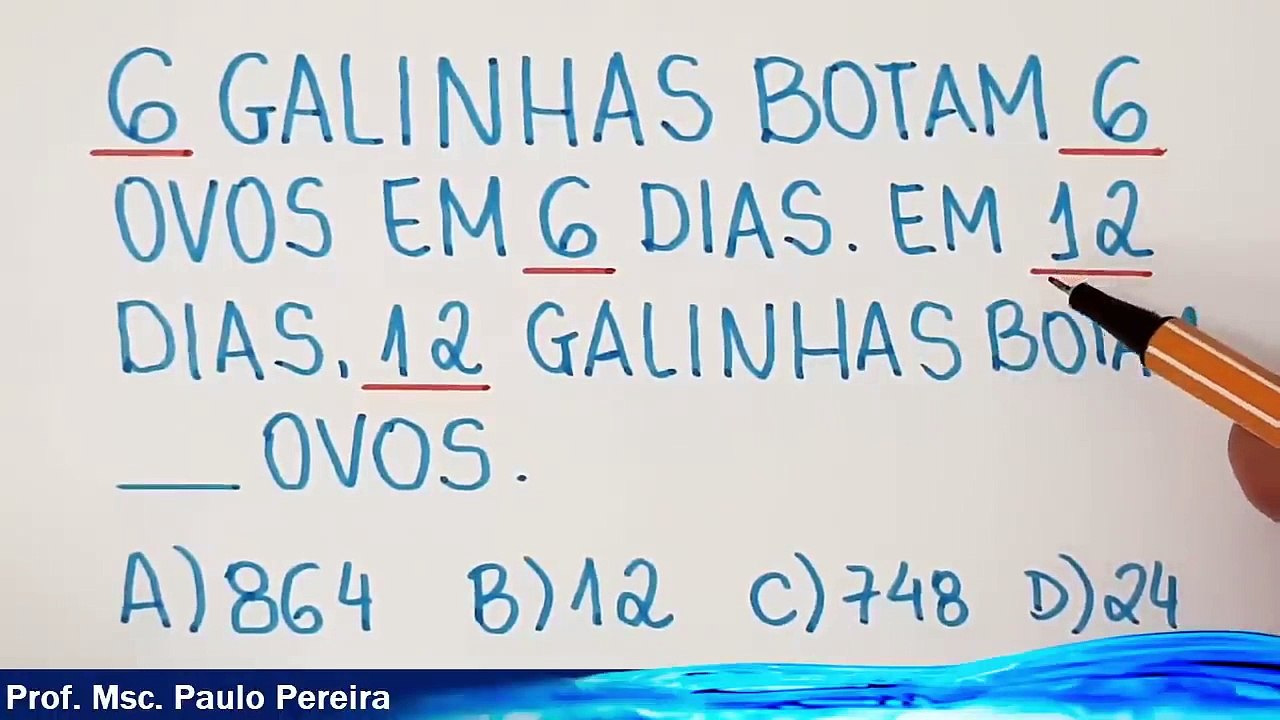 6 GALINHAS BOTAM 6
OVOS EM 6 DIAS. EM 12
DIAS, 12 GALINHAS
___ OVOS.
A) 864 B) 12 C) 748 D) 24
Prof. Msc. Paulo Pereira